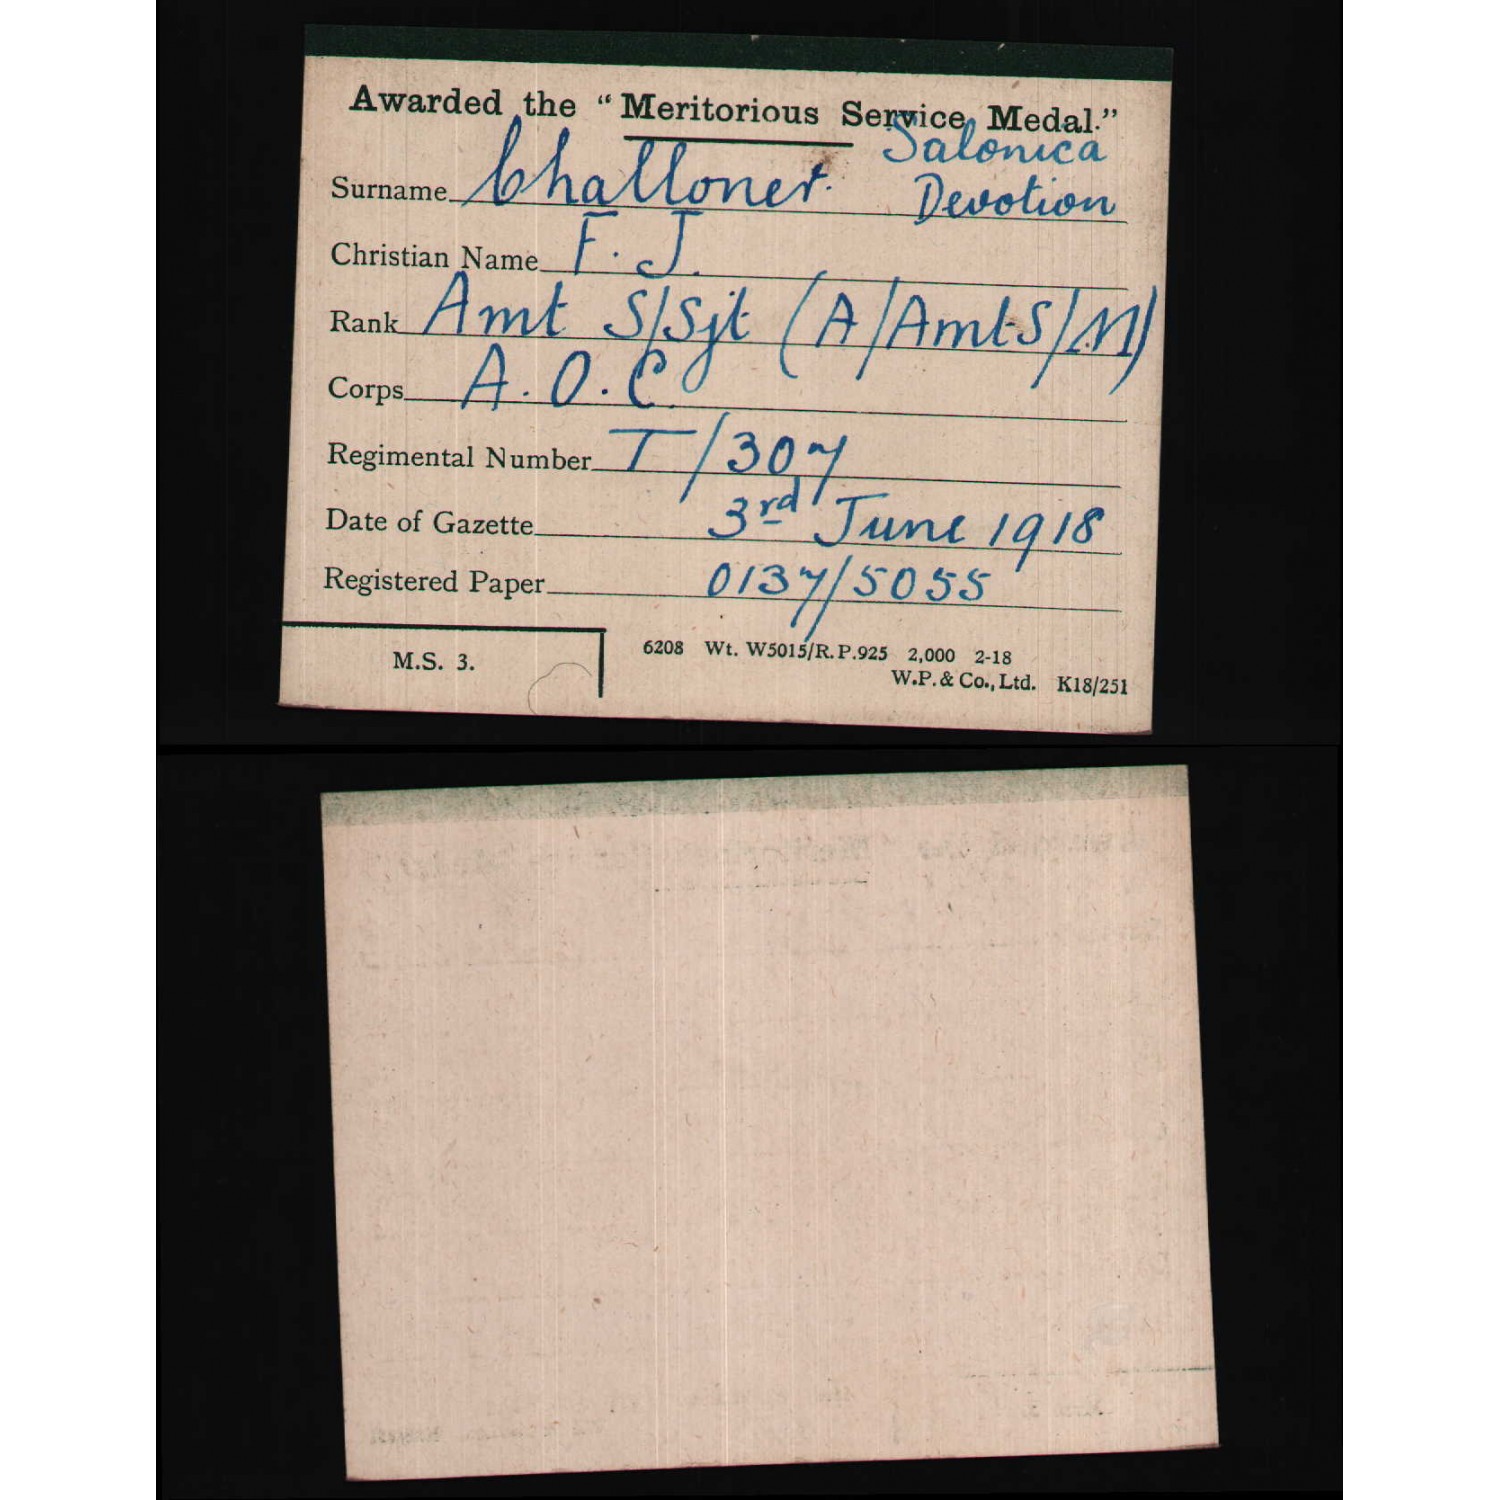 Awarded the "Meritorious Service Medal."
Salonica
Surname Challoner. Devotion
Christian Name F. J.
Rank Amt S/Sjt (A/Amt S/M)
Corps A. O. C.
Regimental Number T/307
Date of Gazette 3rd June 1918
Registered Paper 0137/5055
M.S. 3.
6208 Wt. W5015/R.P.925 2,000 2-18
W.P. & Co., Ltd. K18/251